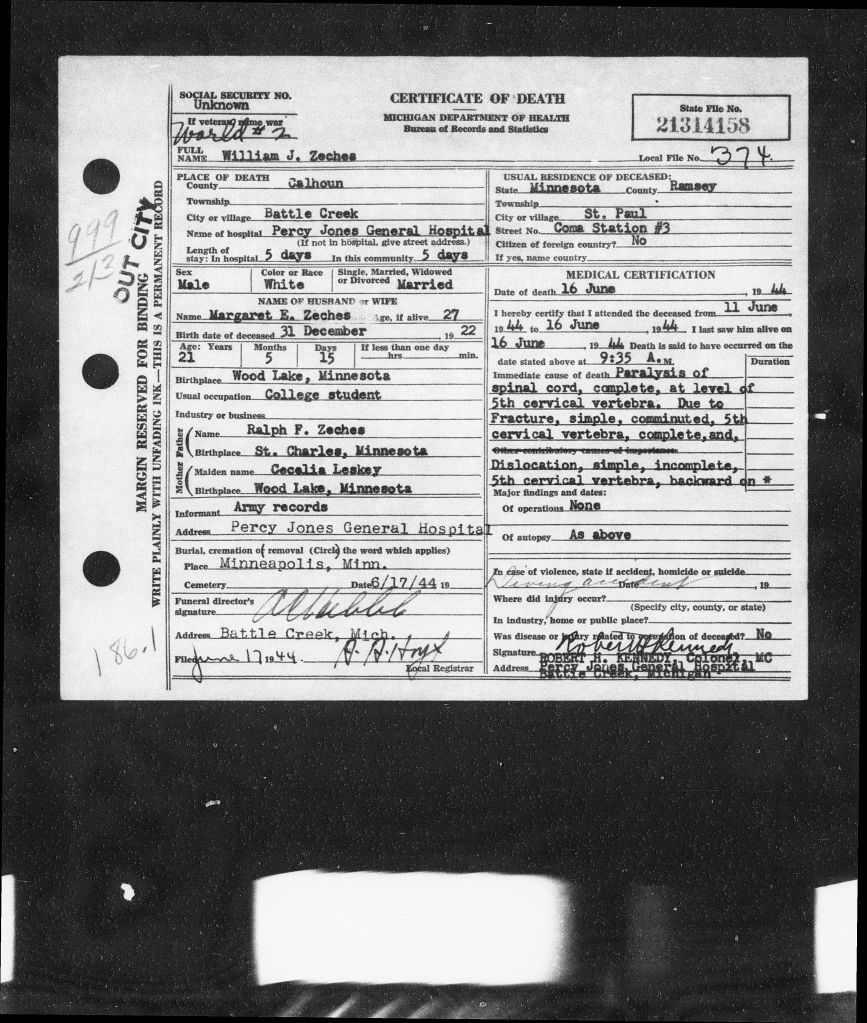 SOCIAL SECURITY NO.
Unknown
If veteran name war
World # 2
CERTIFICATE OF DEATH
MICHIGAN DEPARTMENT OF HEALTH
Bureau of Records and Statistics
State File No.
21314158
FULL NAME William J. Zeches
Local File No. 374
PLACE OF DEATH
County Calhoun
Township
City or village Battle Creek
Name of hospital Percy Jones General Hospital
(If not in hospital, give street address.)
Length of stay: In hospital 5 days In this community 5 days
USUAL RESIDENCE OF DECEASED:
State Minnesota County Ramsey
Township
City or village St. Paul
Street No. Coma Station #3
Citizen of foreign country? No
If yes, name country
Sex Male
Color or Race White
Single, Married, Widowed or Divorced Married
NAME OF HUSBAND or WIFE
Name Margaret E. Zeches Age, if alive 27
Birth date of deceased 31 December 1922
Age: Years Months Days If less than one day
21 5 15 hrs. min.
Birthplace Wood Lake, Minnesota
Usual occupation College student
Industry or business
Father
Name Ralph F. Zeches
Birthplace St. Charles, Minnesota
Mother
Maiden name Cecelia Leskey
Birthplace Wood Lake, Minnesota
Informant Army records
Address Percy Jones General Hospital
Burial, cremation or removal (Circle the word which applies)
Place Minneapolis, Minn.
Cemetery Date 6/17/44 19
Funeral director's signature
Address Battle Creek, Mich.
Filed June 17 1944 H. H. Hoyt
Local Registrar
MEDICAL CERTIFICATION
Date of death 16 June, 1944
I hereby certify that I attended the deceased from 11 June
1944 to 16 June, 1944. I last saw him alive on
16 June, 1944 Death is said to have occurred on the
date stated above at 9:35 A.M. Duration
Immediate cause of death Paralysis of
spinal cord, complete, at level of
5th cervical vertebra. Due to
Fracture, simple, comminuted, 5th
cervical vertebra, complete,and,
Other contributory causes of importance:
Dislocation, simple, incomplete,
5th cervical vertebra, backward on *
Major findings and dates:
Of operations None
Of autopsy As above
In case of violence, state if accident, homicide or suicide
Diving accident Date , 19
Where did injury occur?
(Specify city, county, or state)
In industry, home or public place?
Was disease or injury related to occupation of deceased? No
Signature Robert H Kennedy
ROBERT H. KENNEDY, Colonel, MC
Address Percy Jones General Hospital
Battle Creek, Michigan
MARGIN RESERVED FOR BINDING
WRITE PLAINLY WITH UNFADING INK—THIS IS A PERMANENT RECORD
OUT CITY
999
213
186.1